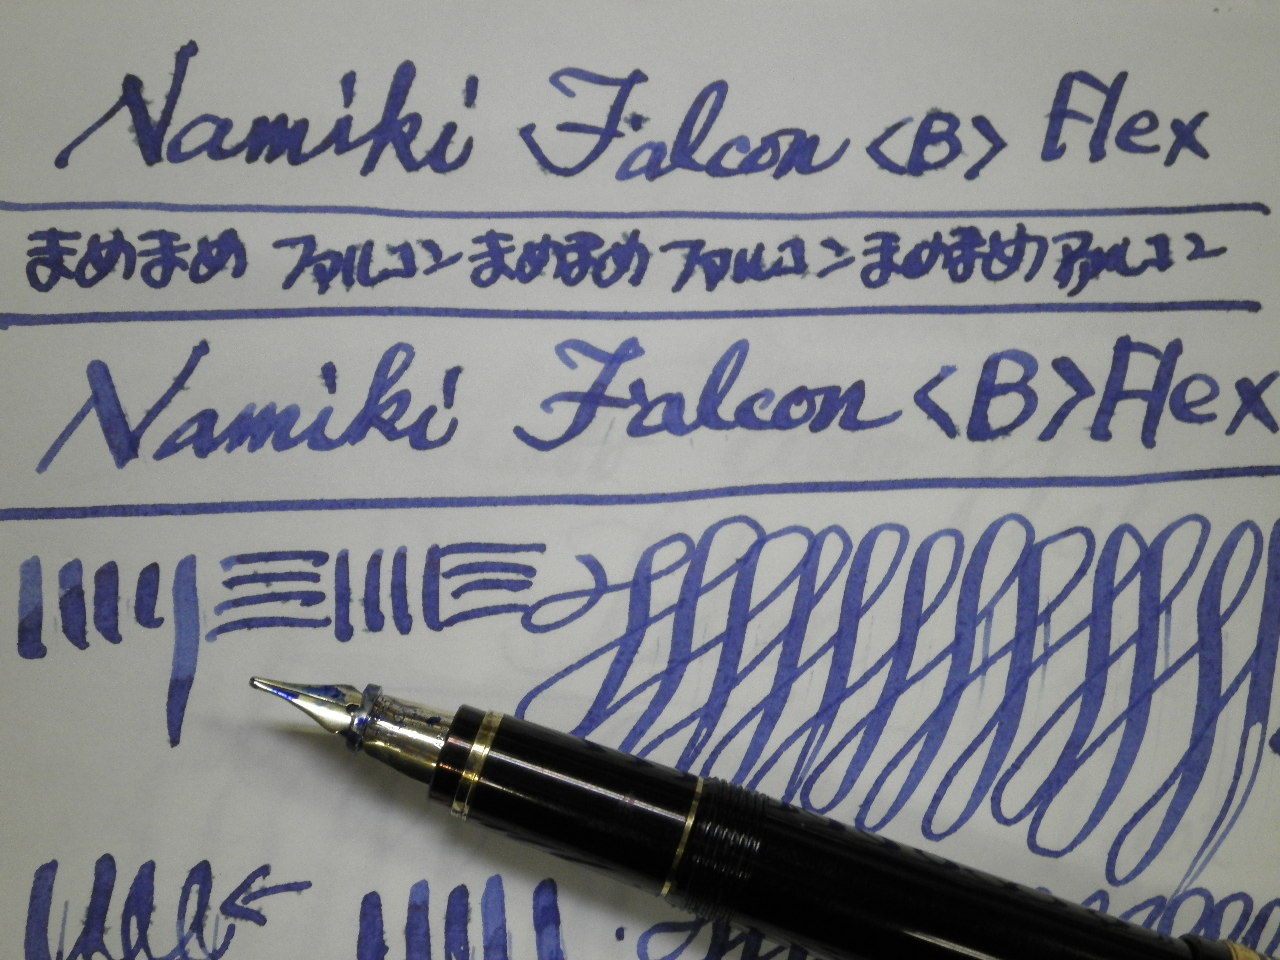 Namiki Falcon <B> Flex
まめまめ ファルコン まめまめ ファルコン まめまめ ファルコン
Namiki Falcon <B> Flex